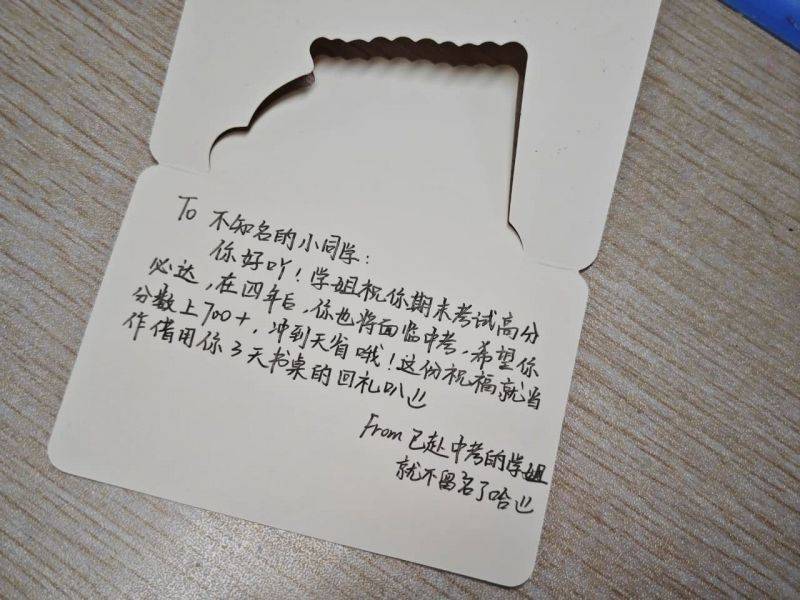 To 不知名的小同学:
你好吖!学姐祝你期末考试高分
必达,在四年后,你也将面临中考,希望你
分数上700+,冲到天省哦!这份祝福就当
作借用你3天书桌的回礼叭
From 已赴中考的学姐
就不留名了哈